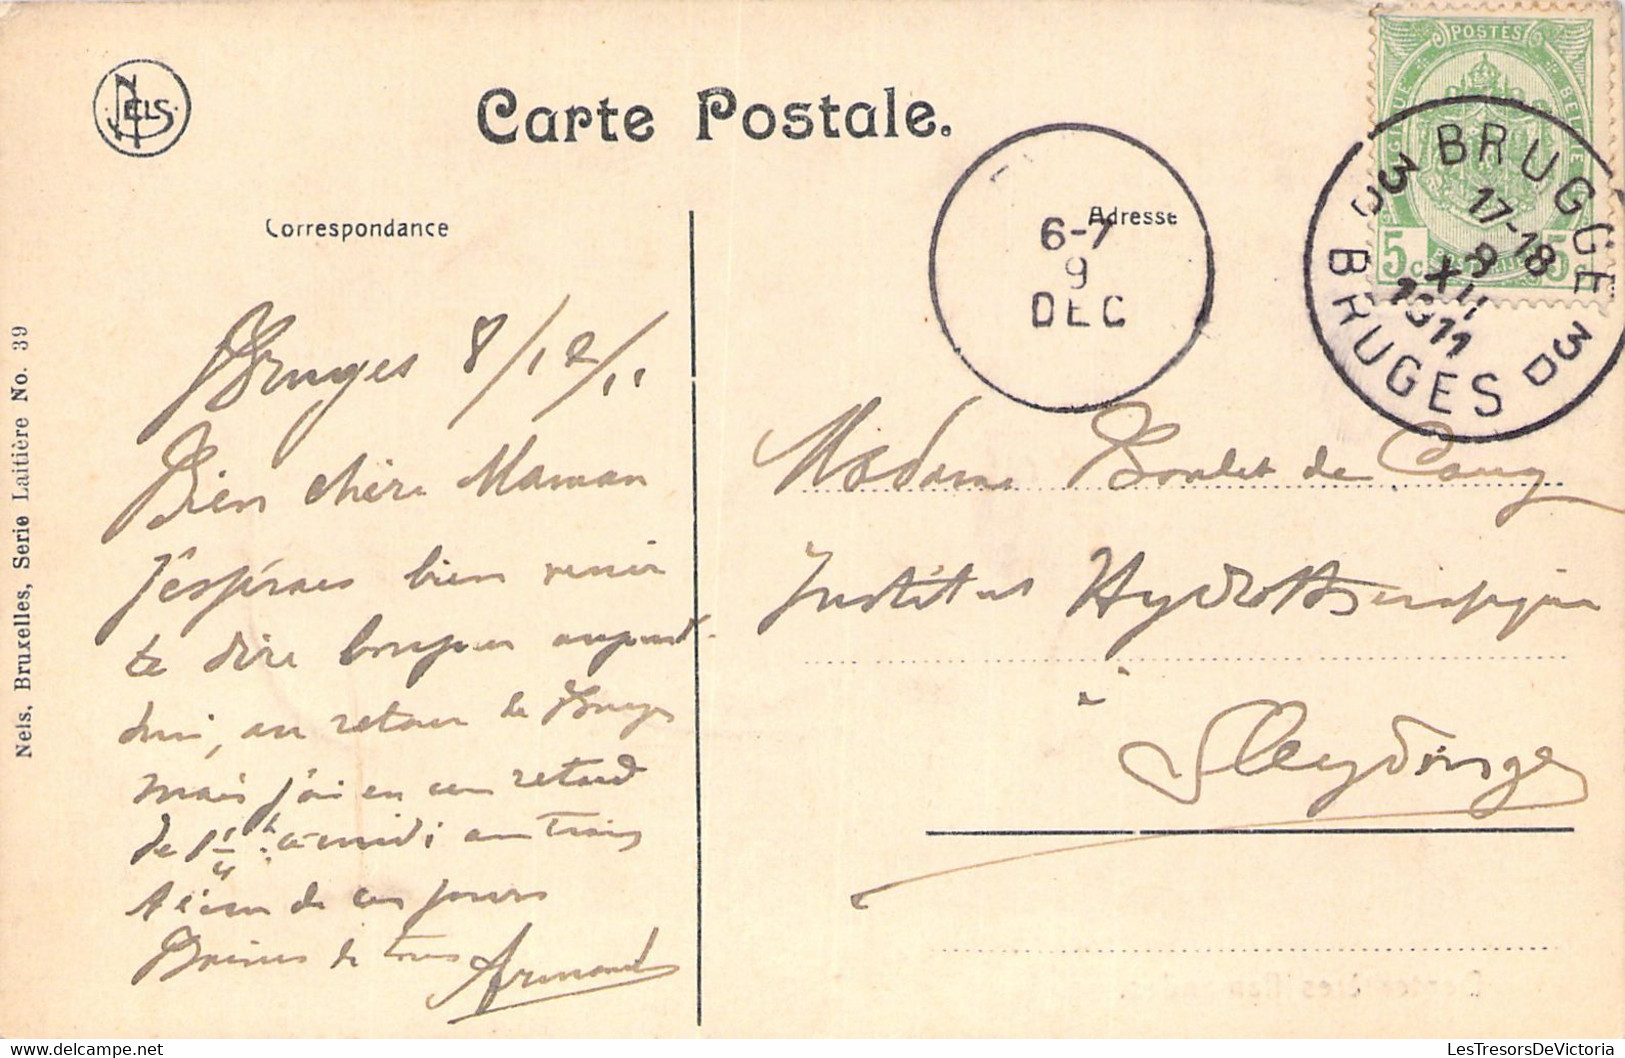 NELS
Carte Postale.
POSTES
BELGIQUE BELGIE
5c 5c
BRUGGE
17-18
8
XII
1911
3D 3D
BRUGES
Correspondance
Adresse
6-7
9
DEC
Bruges 8/12/11
Bien chère Maman
J'espérais bien venir
te dire bonjour aujourd-
hui, au retour de Bruges
mais j'ai eu un retard
de 1 1/4 h. à midi au train
A l'un de ces jours
Baisers de tous Armand
Madame Boulet de
Institut Hydrothérapique
à
Sleydinge
Nels, Bruxelles, Serie Laitière No. 39
LesTresorsDeVictoria